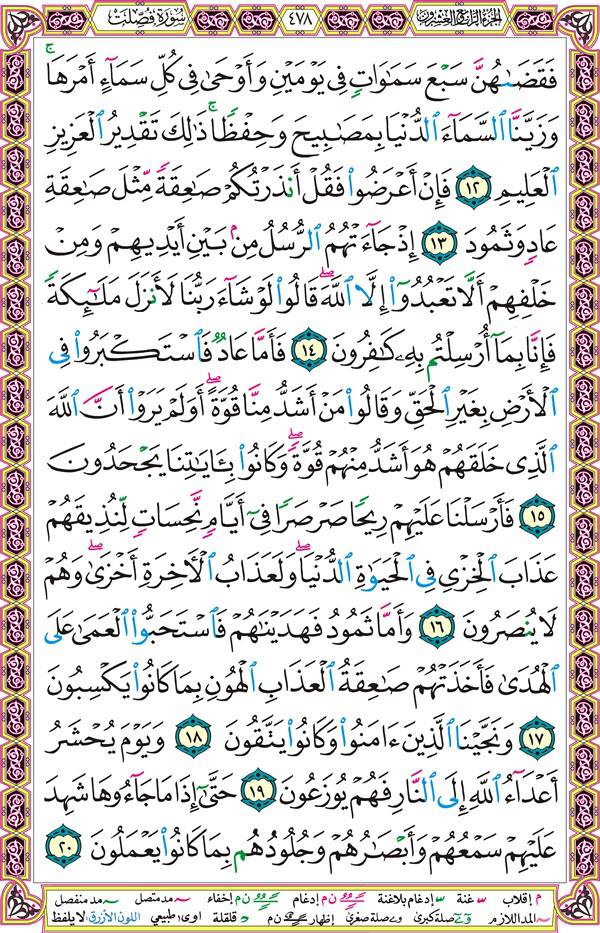 الجزء الرابع والعشرون
٤٧٨
سورة فصلت
فَقَضَىٰهُنَّ سَبْعَ سَمَٰوَاتٖ فِي يَوْمَيْنِ وَأَوْحَىٰ فِي كُلِّ سَمَآءٍ أَمْرَهَاۚ
وَزَيَّنَّا ٱلسَّمَآءَ ٱلدُّنْيَا بِمَصَٰبِيحَ وَحِفْظٗاۚ ذَٰلِكَ تَقْدِيرُ ٱلْعَزِيزِ
ٱلْعَلِيمِ ١٢ فَإِنْ أَعْرَضُوا۟ فَقُلْ أَنذَرْتُكُمْ صَٰعِقَةٗ مِّثْلَ صَٰعِقَةِ
عَادٖ وَثَمُودَ ١٣ إِذْ جَآءَتْهُمُ ٱلرُّسُلُ مِنۢ بَيْنِ أَيْدِيهِمْ وَمِنْ
خَلْفِهِمْ أَلَّا تَعْبُدُوٓا۟ إِلَّا ٱللَّهَۖ قَالُوا۟ لَوْ شَآءَ رَبُّنَا لَأَنزَلَ مَلَٰٓئِكَةٗ
فَإِنَّا بِمَآ أُرْسِلْتُم بِهِۦ كَٰفِرُونَ ١٤ فَأَمَّا عَادٞ فَٱسْتَكْبَرُوا۟ فِي
ٱلْأَرْضِ بِغَيْرِ ٱلْحَقِّ وَقَالُوا۟ مَنْ أَشَدُّ مِنَّا قُوَّةًۖ أَوَلَمْ يَرَوْا۟ أَنَّ ٱللَّهَ
ٱلَّذِي خَلَقَهُمْ هُوَ أَشَدُّ مِنْهُمْ قُوَّةٗۖ وَكَانُوا۟ بِـَٔايَٰتِنَا يَجْحَدُونَ
١٥ فَأَرْسَلْنَا عَلَيْهِمْ رِيحٗا صَرْصَرٗا فِيٓ أَيَّامٖ نَّحِسَاتٖ لِّنُذِيقَهُمْ
عَذَابَ ٱلْخِزْيِ فِي ٱلْحَيَوٰةِ ٱلدُّنْيَاۖ وَلَعَذَابُ ٱلْأٓخِرَةِ أَخْزَىٰۖ وَهُمْ
لَا يُنصَرُونَ ١٦ وَأَمَّا ثَمُودُ فَهَدَيْنَٰهُمْ فَٱسْتَحَبُّوا۟ ٱلْعَمَىٰ عَلَى
ٱلْهُدَىٰ فَأَخَذَتْهُمْ صَٰعِقَةُ ٱلْعَذَابِ ٱلْهُونِ بِمَا كَانُوا۟ يَكْسِبُونَ
١٧ وَنَجَّيْنَا ٱلَّذِينَ ءَامَنُوا۟ وَكَانُوا۟ يَتَّقُونَ ١٨ وَيَوْمَ يُحْشَرُ
أَعْدَآءُ ٱللَّهِ إِلَى ٱلنَّارِ فَهُمْ يُوزَعُونَ ١٩ حَتَّىٰٓ إِذَا مَا جَآءُوهَا شَهِدَ
عَلَيْهِمْ سَمْعُهُمْ وَأَبْصَٰرُهُمْ وَجُلُودُهُم بِمَا كَانُوا۟ يَعْمَلُونَ ٢٠
م إقلاب غنة إدغام بلاغنة ن م إدغام ن م إخفاء مد متصل مد منفصل
المد اللازم صلة كبرى صلة صغرى إظهار ن م قلقلة اوى: طبيعي اللون الأزرق: لا يلفظ